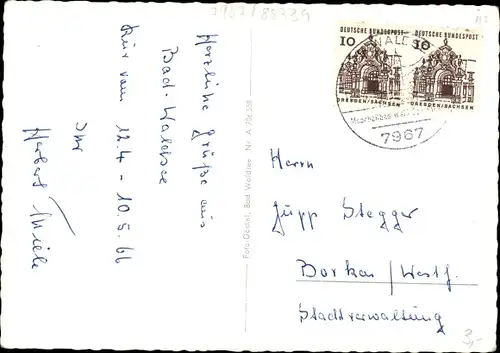 Herzliche Grüße aus
Bad-Waldsee
Kur vom 12.4 - 10.5.66
Ihr
Herbert Thiele
Foto-Oechsle, Bad Waldsee Nr. A
DEUTSCHE BUNDESPOST
10
DRESDEN/SACHSEN
DEUTSCHE BUNDESPOST
10
DRESDEN/SACHSEN
7967
Herrn
Jupp Stegger
Borken/Westf.
Stadtverwaltung